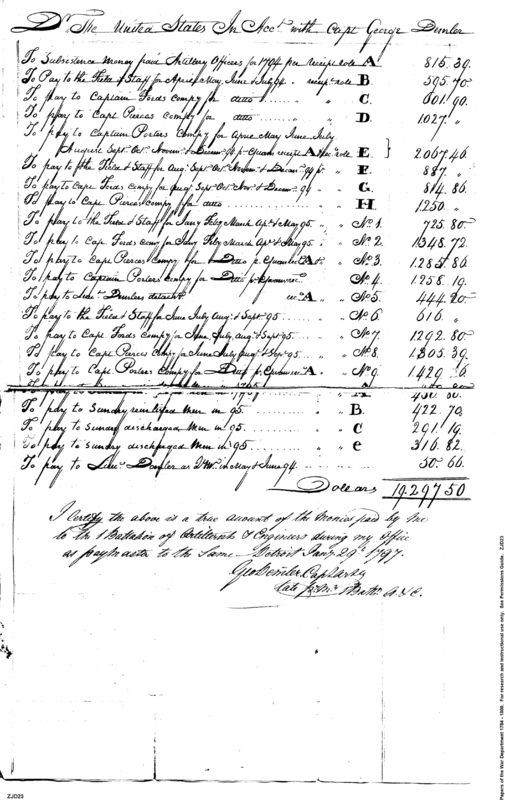 Dr. The United States In Acct. with Capt George Demler
To Subsistence Money paid Artillery Officers for 1794 per receipt roll A 815.39.
To Pay to the Field & Staff for April, May, June & July 94 per receipt roll B. 595.70
To pay to Captain Fords compy for ditto C. 601.90.
To pay to Capt Pierces compy for ditto D. 1027. "
To pay to Captain Porters Compy for April May June July
August Sept. Oct. Novem. & Decem. 94 receipt A roll E } 2067.46.
To pay to the Field & Staff for Aug. Sept. Oct. Novem. & Decem. 94 F. 887. "
To pay to Capt Fords compy for Aug. Sept. Oct. Nov. & Decem. 94 " " G. 814.86.
To pay to Cap Pierces compy for ditto H 1250. "
To pay to the Field & Staff for Jany Feby March Apl. & May 95. " " No. 1. 725.80
To pay to Cap. Fords comy for Jany Feby March Apl. & May 95 " " No. 2. 1348.72.
To pay to Cap Pierces Compy for Ditto A " " No. 3. 1285.86
To pay to Captain Porters compy for Ditto " " No. 4. 1258.19.
To pay to Lieu. Demlers detacht. A " " No. 5. 444.20
To pay to the Field & Staff for June July Aug. & Sept. 95 " " No 6 616. "
To pay to Cap. Fords compy for June, July, Aug. & Sept. 95 " " No 7. 1292.80
To pay to Cap Pierces Compy for June July, Aug. & Sep. 95 " " No 8. 1305.39.
To pay to Cap. Porters Compy for Ditto A " " No 9. 1429.
To pay to Sundry reinlisted Men in 95. B. 422.70.
To pay to Sundry discharged Men in 95 C 291.19.
To pay to Sundry discharged Men in 95 e 316.82.
To pay to Lieu. Demler as in May & June 94. 50.66.
Dollars 19.297 50
I Certify the above is a true account of the Monies paid by Me
to the 1 Batalion of Artillerists & Engineers during my Office
as paymaster to the Same Detroit Jany 29th 1797.
Geo Demler Capt Arty
late P. Mr. 1 Battn. A. & E.
ZJD23
Papers of the War Department 1784 - 1800. For research and instructional use only. See Permissions Guide. ZJD23